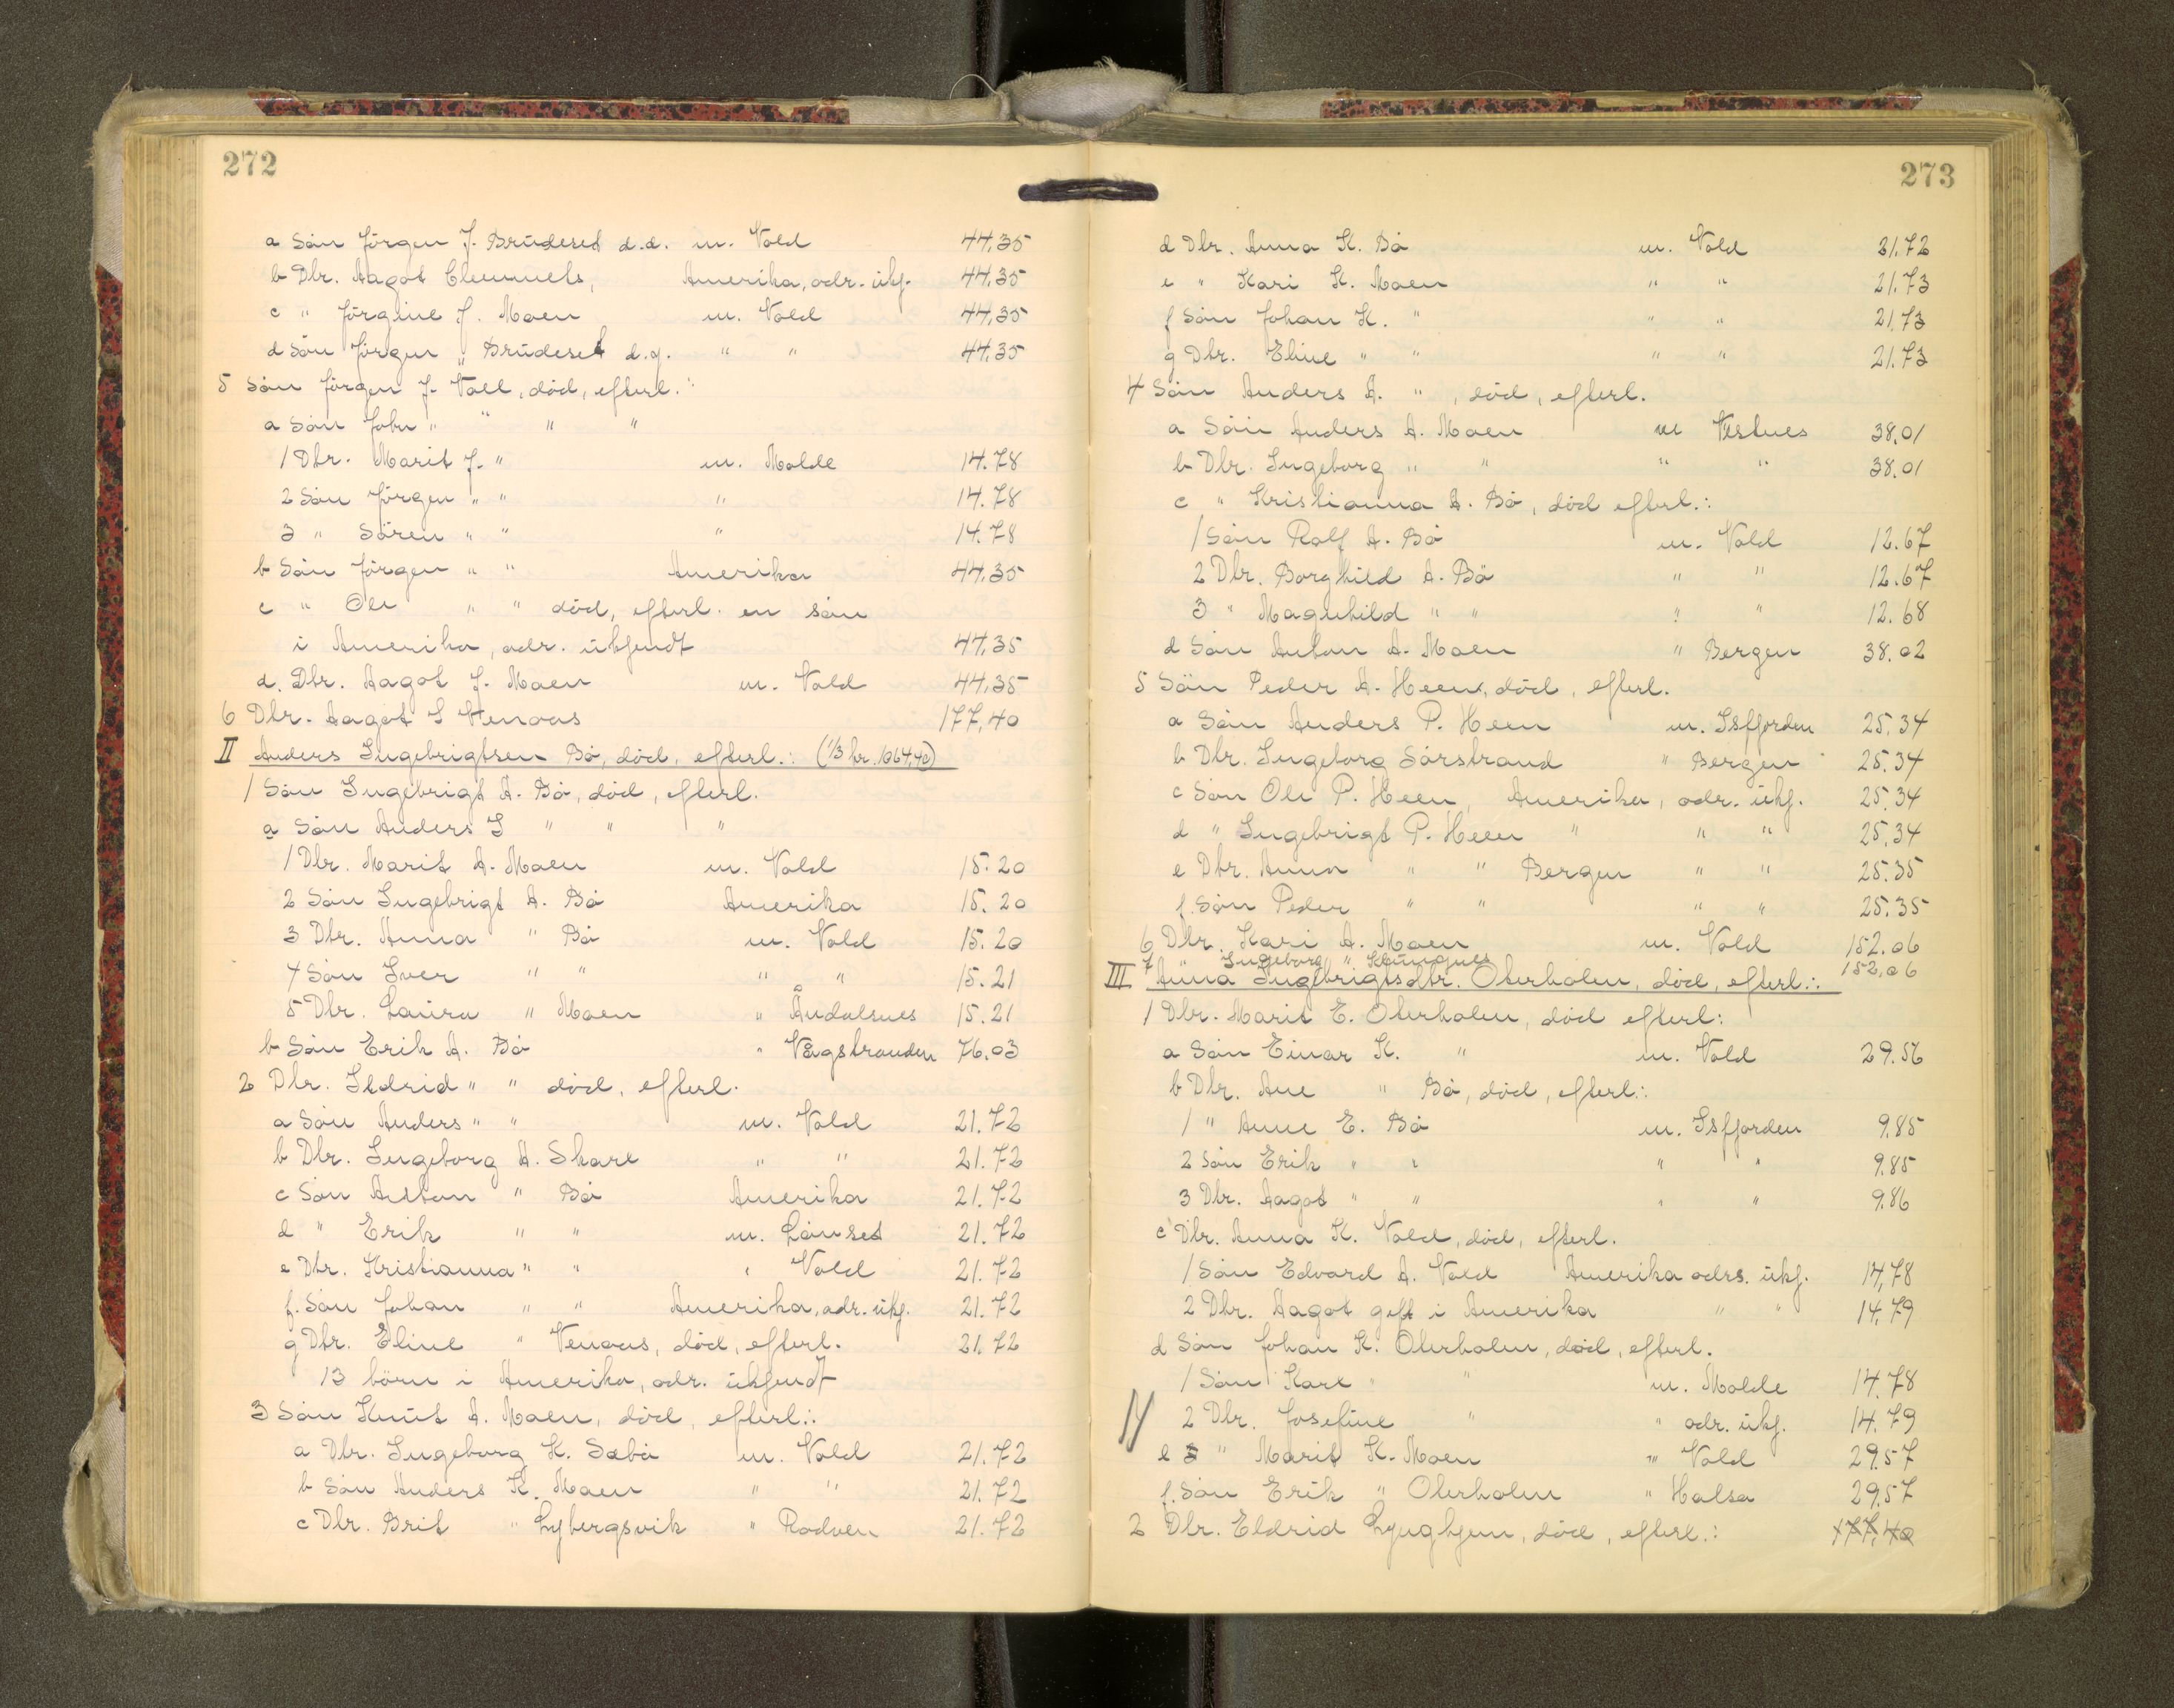 272
a Sön Jörgen J. Brüdeset d.d. m. Vold 44,35
b Dtr. Aagot Clemmets, Amerika, adr. ükj. 44,35
c " Jörgine J. Moen m. Vold 44,35
d Sön Jörgen " Brüdeset d.y. " " 44,35
5 Sön Jörgen J. Voll, död, efterl.:
a Sön John " " " "
1 Dtr. Marit J. " m. Molde 14.78
2 Sön Jörgen " " " 14.78
3 " Sören " " " 14.78
b Sön Jörgen " " Amerika 44,35
c " Ole " " död, efterl. en sön
i Amerika, adr. ükjendt 44,35
d. Dtr. Aagot J. Moen m. Vold 44,35
6 Dtr. Aagot I Venaas 177,40
II Anders Ingebrigtsen Bö, död, efterl.: (1/3 kr. 1064,40)
1 Sön Ingebrigt A. Bö, död, efterl.
a Sön Anders I " " "
1 Dtr. Marit A. Moen m. Vold 15.20
2 Sön Ingebrigt A. Bö Amerika 15.20
3 Dtr. Anna " Bö m. Vold 15.20
4 Sön Iver " " " " 15.21
5 Dtr. Laura " Moen " Åndalsnes 15.21
b Sön Erik A. Bö " Vågstranden 76.03
2 Dtr. Ildrid " " död, efterl.
a Sön Anders " " m. Vold 21.72
b Dtr. Ingeborg A. Skare " " 21.72
c Sön Aston " Bö Amerika 21.72
d " Erik " " m. Lönset 21.72
e Dtr. Kristianna " " " Vold 21.72
f. Sön Johan " " Amerika, adr. ükj. 21.72
g Dtr. Eline " Venaas, död, efterl. 21.72
13 börn i Amerika, adr. ükjendt
3 Sön Knüt A. Moen, död, efterl.:
a Dtr. Ingeborg K. Sæbö m. Vold 21.72
b Sön Anders K. Moen " " 21.72
c Dtr. Brit " Lybergsvik " Rodven 21.72
273
d Dtr. Anna K. Bö m. Vold 21.72
e " Kari K. Moen " " 21.73
f Sön Johan K. " " " 21.73
g Dtr. Eline " " " " 21.73
4 Sön Anders A. ", död, efterl.
a Sön Anders A. Moen m Vestnes 38,01
b Dtr. Ingeborg " " " " 38.01
c " Kristianna A. Bö, död efterl.:
1 Sön Rolf A. Bö m. Vold 12.67
2 Dtr. Borghild A. Bö " " 12.67
3 " Magnhild " " " " 12.68
d Sön Anton A. Moen " Bergen 38.02
5 Sön Peder A. Heen, död, efterl.
a Sön Anders P. Heen m. Isfjorden 25.34
b Dtr. Ingeborg Sörstrand " Bergen 25.34
c Sön Ole P. Heen, Amerika, adr. ükj. 25.34
d " Ingebrigt P. Heen " " " 25.34
e Dtr. Anna " " Bergen " " 25.35
f. Sön Peder " " " " 25.35
6 Dtr. Kari A. Moen m. Vold 152.06
7 Ingeborg " Klüngnes 152,06
III Anna Ingebrigtsdtr. Oterholm, död, efterl.:
1 Dtr. Marit E. Oterholm, död efterl:
a Sön Einar K. " m. Vold 29.56
b Dtr. Ane " Bö, död, efterl.:
1 " Anne E. Bö m. Isfjorden 9.85
2 Sön Erik " " " " 9.85
3 Dtr. Aagot " " " " 9.86
c Dtr. Anna K. Vold, död, efterl.
1 Sön Edvard A. Vold Amerika adrs. ükj. 14,78
2 Dtr. Aagot gift i Amerika " " 14.79
d Sön Johan K. Oterholm, död, efterl.
1 Sön Kare " " m. Molde 14.78
2 Dtr. Josefine " " adr. ükj. 14.79
e " Marit K. Moen " Vold 29.57
f. Sön Erik " Oterholm " Halsa 29.57
2 Dtr. Eldrid Lynghjem, död, efterl.: 177,40